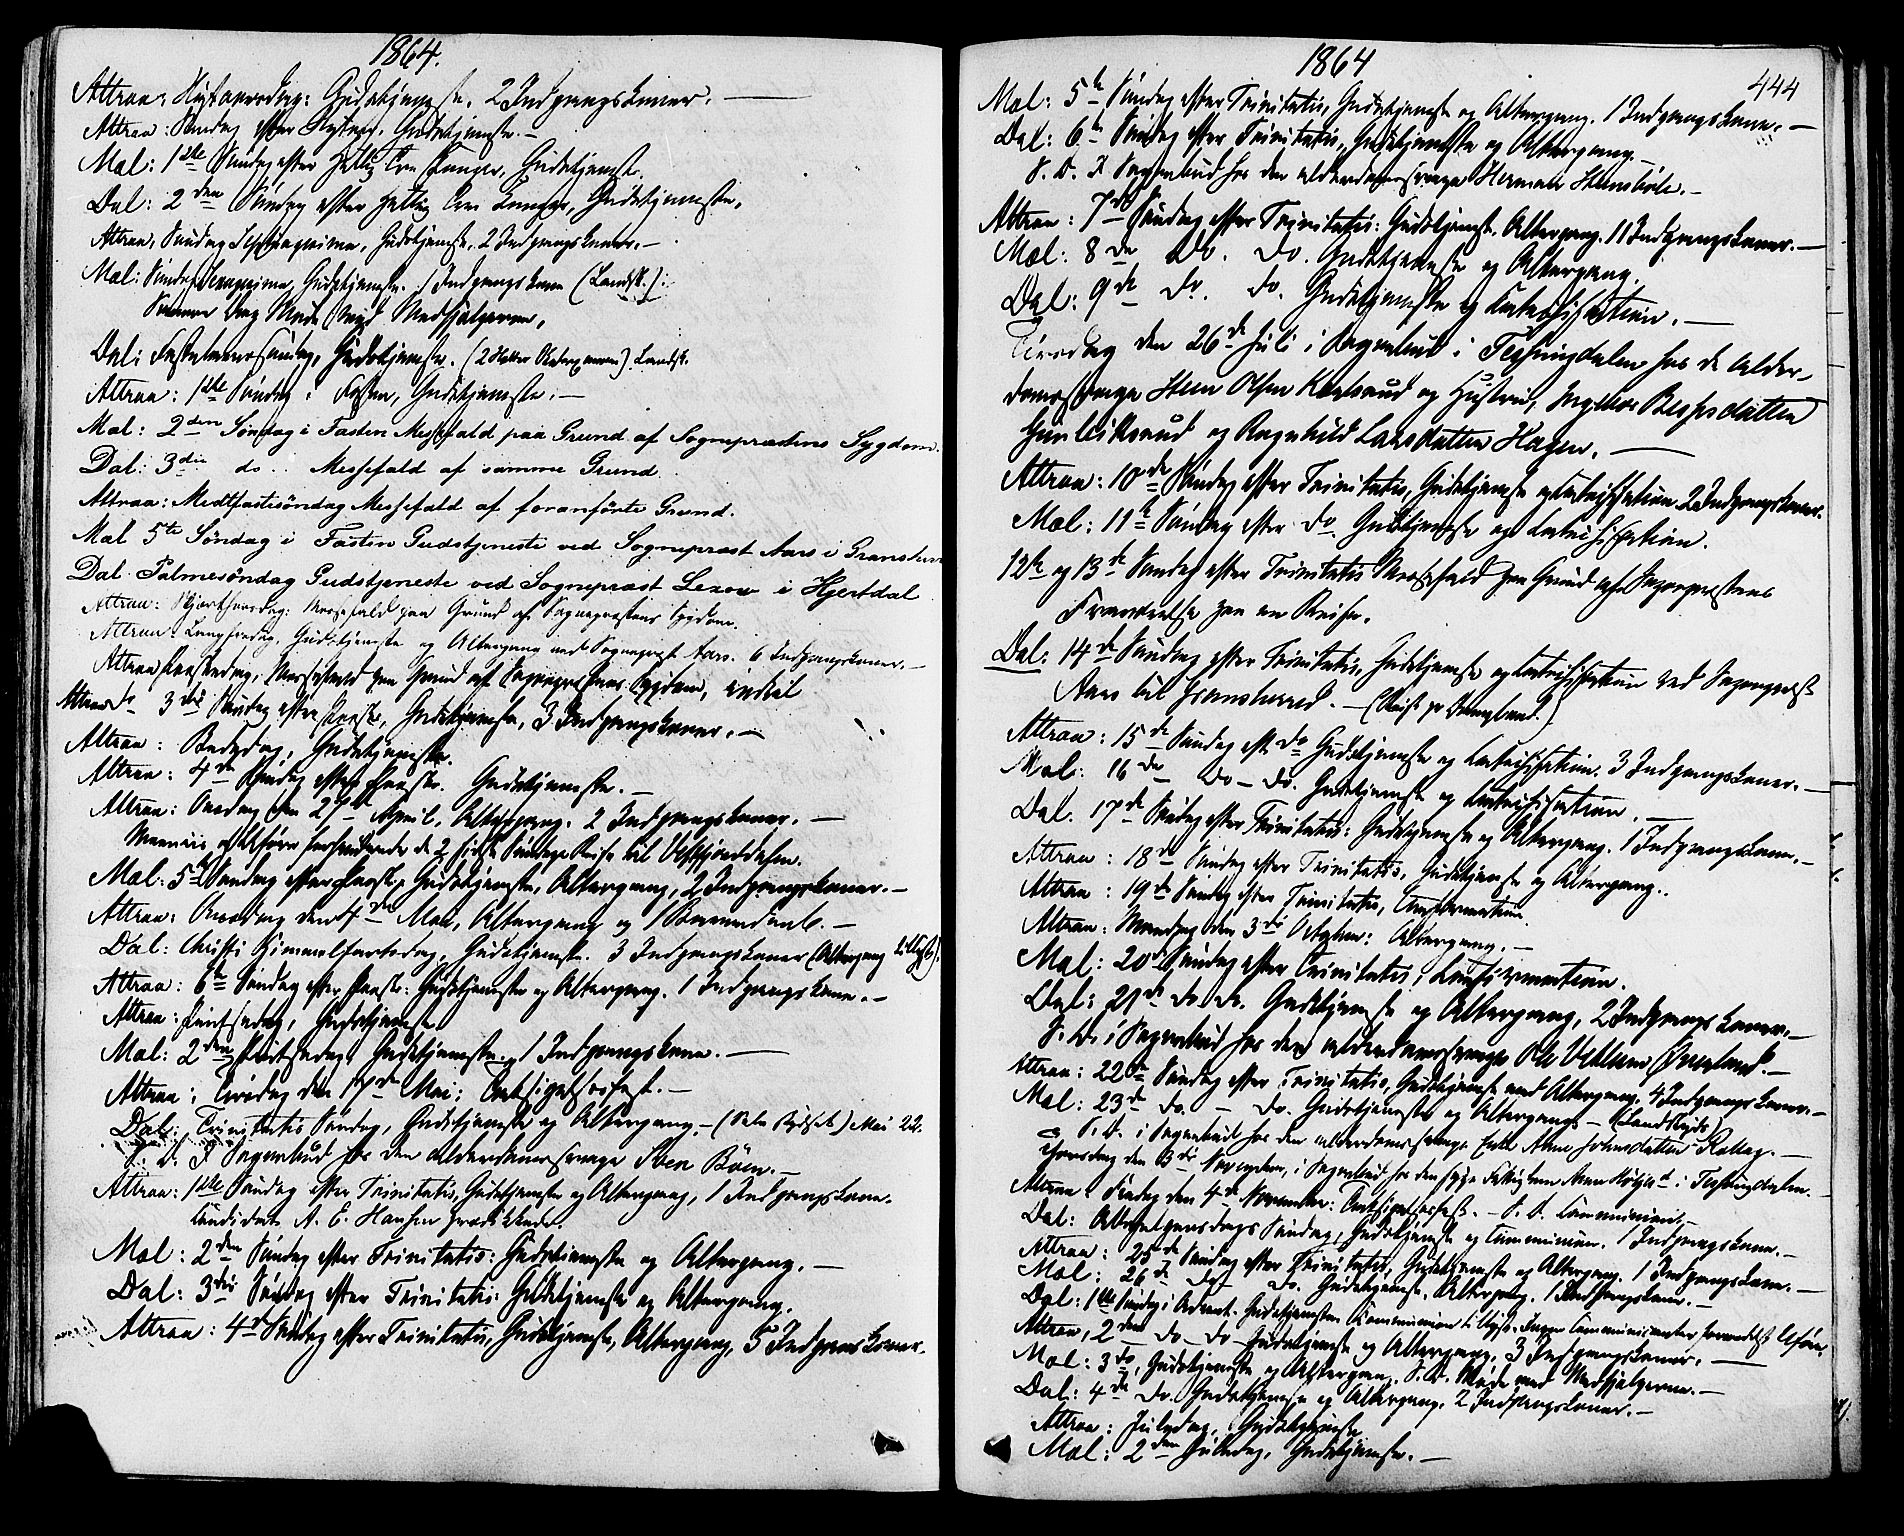 1864.
Attraa: Nytaarsdag: Gudstjeneste. 2 Indgangskoner. —
Attraa: Søndag efter Nytaar. Gudstjeneste. —
Mæl: 1ste Søndag efter Hellig Tre Konger, Gudstjeneste.
Dal: 2den Søndag efter Hellig Tre Konger, Gudstjeneste.
Attraa, Søndag Septuagesima, Gudstjeneste. 2 Indgangskoner. —
Mæl: Søndag Sexagesima, Gudstjeneste. 1 Indgangskone (Landsk.):
Samme Dag Møde med Medhjælperne.
Dal: Fastelavnssøndag, Gudstjeneste. (2 ) Landsk.
Attraa: 1ste Søndag i Fasten, Gudstjeneste. —
Mæl: 2den Søndag i Fasten Messefald paa Grund af Sognepræstens Sygdom.
Dal: 3die do.. Messefald af samme Grund.
Attraa: Midtfastesøndag Messefald af foranførte Grund.
Mæl 5te Søndag i Fasten Gudstjeneste ved Sognepræst Aars i Gransher
Dal. Palmesøndag Gudstjeneste ved Sognepræst Lexow i Hjertdal
Attraa: Skjærthorsdag: Messefald paa Grund af Sognepræstens Sygdom.
Attraa: Langfredag, Gudstjeneste og Altergang ved Sognepræst Aars. 6 Indgangskoner. —
Attraa Paaskedag, Messefald paa Grund af Sognepræstens Sygdom, indtil
Attraa 3die Søndag efter Paaske, Gudstjeneste, 3 Indgangskoner. —
Attraa: Bededag, Gudstjeneste.
Attraa: 4de Søndag efter Paaske. Gudstjeneste. —
Attraa: Onsdag den 27de April, Altergang. 2 Indgangskoner. —
og Uføre forhindrede de 2 sidste Søndage Reise til Vestfjorddalen.
Mæl: 5te Søndag efter Paaske, Gudstjeneste, Altergang, 2 Indgangskoner. —
Attraa: Onsdag den 4de Mai, Altergang og 1 Barnedaab. —
Dal: Christi Himmelfartsdag, Gudstjeneste. 3 Indgangskoner (Altergang tilligst).
Attraa: 6te Søndag efter Paaske: Gudstjeneste og Altergang. 1 Indgangskone. —
Attraa: Pintsedag, Gudstjeneste
Mæl: 2den Pintsedag, Gudstjeneste. 1 Indgangskone. —
Attraa: Tirsdag den 17de Mai: Taksigelsesfest. —
Dal: Trinitatis Søndag, Gudstjeneste og Altergang. — () Mai 22.
S. D. I Sognebud hos den alderdomssvage Sven Böen. —
Attraa: 1ste Søndag efter Trinitatis, Gudstjeneste og Altergang, 1 Indgangskone.
Candidat A. E. Hansen prædikede.
Mæl: 2den Søndag efter Trinitatis: Gudstjeneste og Altergang. —
Dal: 3die Søndag efter Trinitatis: Gudstjeneste og Altergang.
Attraa: 4de Søndag efter Trinitatis, Gudstjeneste, Altergang, 5 Indgangskoner.
1864
444
Mæl: 5te Søndag efter Trinitatis, Gudstjeneste og Altergang. 1 Indgangskone. —
Dal: 6te Søndag efter Trinitatis, Gudstjeneste og Altergang. —
S. D. I Sognebud hos den alderdomssvage Herman Steensböle. —
Attraa: 7de Søndag efter Trinitatis: Gudstjeneste. Altergang. 11 Indgangskoner. —
Mæl: 8de Do. Do. Gudstjeneste og Altergang.
Dal: 9de Do. Do. Gudstjeneste og Catechisation. —
Tirsdag den 26de Juli i Sognebud i Tessungdalen hos de alder-
domssvage Sten Olsen Karlsrud og Hustru, Ingebor Bessesdatter
Gunleiksrud og Ragnhild Larsdatter Hagen. —
Attraa: 10de Søndag efter Trinitatis, Gudstjeneste og Catechisation 2 Indgangskoner.
Mæl: 11te Søndag efter Do. Gudstjeneste og Catechisation.
12te og 13de Søndag efter Trinitatis Messefald paa Grund af Sognepræstens
Fraværelse paa en Reise.
Dal: 14de Søndag efter Trinitatis, Gudstjeneste og Catechisation ved Sognepræst
Aars til Gransherred. —
Attraa: 15de Søndag eft. Do Gudstjeneste og Catechisation. 3 Indgangskoner. —
Mæl: 16de Do — Do. Gudstjeneste og Catechisation. —
Dal. 17de Søndag efter Trinitatis: Gudstjeneste og Altergang. 1 Indgangskone. —
Attraa: 18de Søndag efter Trinitatis, Gudstjeneste og Altergang..
Attraa: 19de Søndag efter Trinitatis, Confirmation
Attraa: Mandag den 3die October: Altergang. —
Mæl: 20de Søndag efter Trinitatis, Confirmation.
Dal: 21de Do. Do. Gudstjeneste og Altergang, 2 Indgangskoner. —
S. D. i Sognebud hos den alderdomssvage Ole Øverland. —
Attraa: 22de Søndag efter Trinitatis, Gudstjeneste med Altergang, 4 Indgangskoner. —
Mæl: 23de Do. — Do. Gudstjeneste og Altergang — (Landskyds)
S. D. i Sognebud hos den alderdomssvage Enke Anne Johnsdatter Rollag. —
Thorsdag den 3die November, i Sognebud hos den syge i Tessungdalen. —
Attraa: Fredag den 4de November: Taksigelsesfest. — S. D. Communion. —
Dal: Allehelgensdags Søndag, Gudstjeneste og Communion. 1 Indgangskone. —
Attraa: 25de Søndag efter Trinitatis, Gudstjeneste og Altergang. 1 Indgangskone. —
Mæl: 26de Do Do. Gudstjeneste. Altergang. 1 Indgangskone. —
Dal: 1ste Søndag i Advent. Gudstjeneste. Communion tillyst. Ingen Communicanter formedelst Uføre.
Attraa, 2den Do — Do — Gudstjeneste og Altergang, 3 Indgangskoner. —
Mæl: 3 Do, Gudstjeneste og Altergang. S. D. Møde med Medhjælperne. —
Dal: 4de Do. Gudstjeneste og Altergang. 2 Indgangskoner. —
Attraa: Juledag, Gudstjeneste
Mæl: 2den Juledag, Gudstjeneste. —